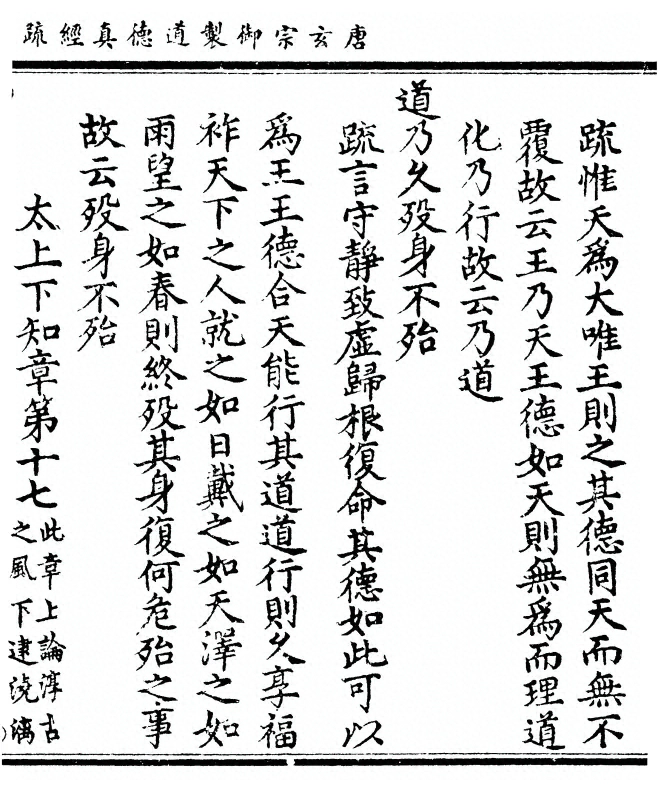 唐玄宗御製道德真經疏
疏惟天為大唯王則之其德同天而無不
覆故云王乃天王德如天則無為而理道
化乃行故云乃道
道乃久歿身不殆
疏言守靜致虛歸根復命其德如此可以
為王王德合天能行其道道行則久享福
祚天下之人就之如日戴之如天澤之如
雨望之如春則終歿其身復何危殆之事
故云歿身不殆
太上下知章第十七
此章上論淳古
之風下逮澆漓